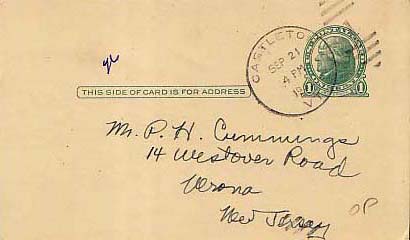 CASTLETO
SEP 21
4 PM
THIS SIDE OF CARD IS FOR ADDRESS
1 1
Mr. P. H. Cummings
14 Westover Road
Verona
New Jersey
OP